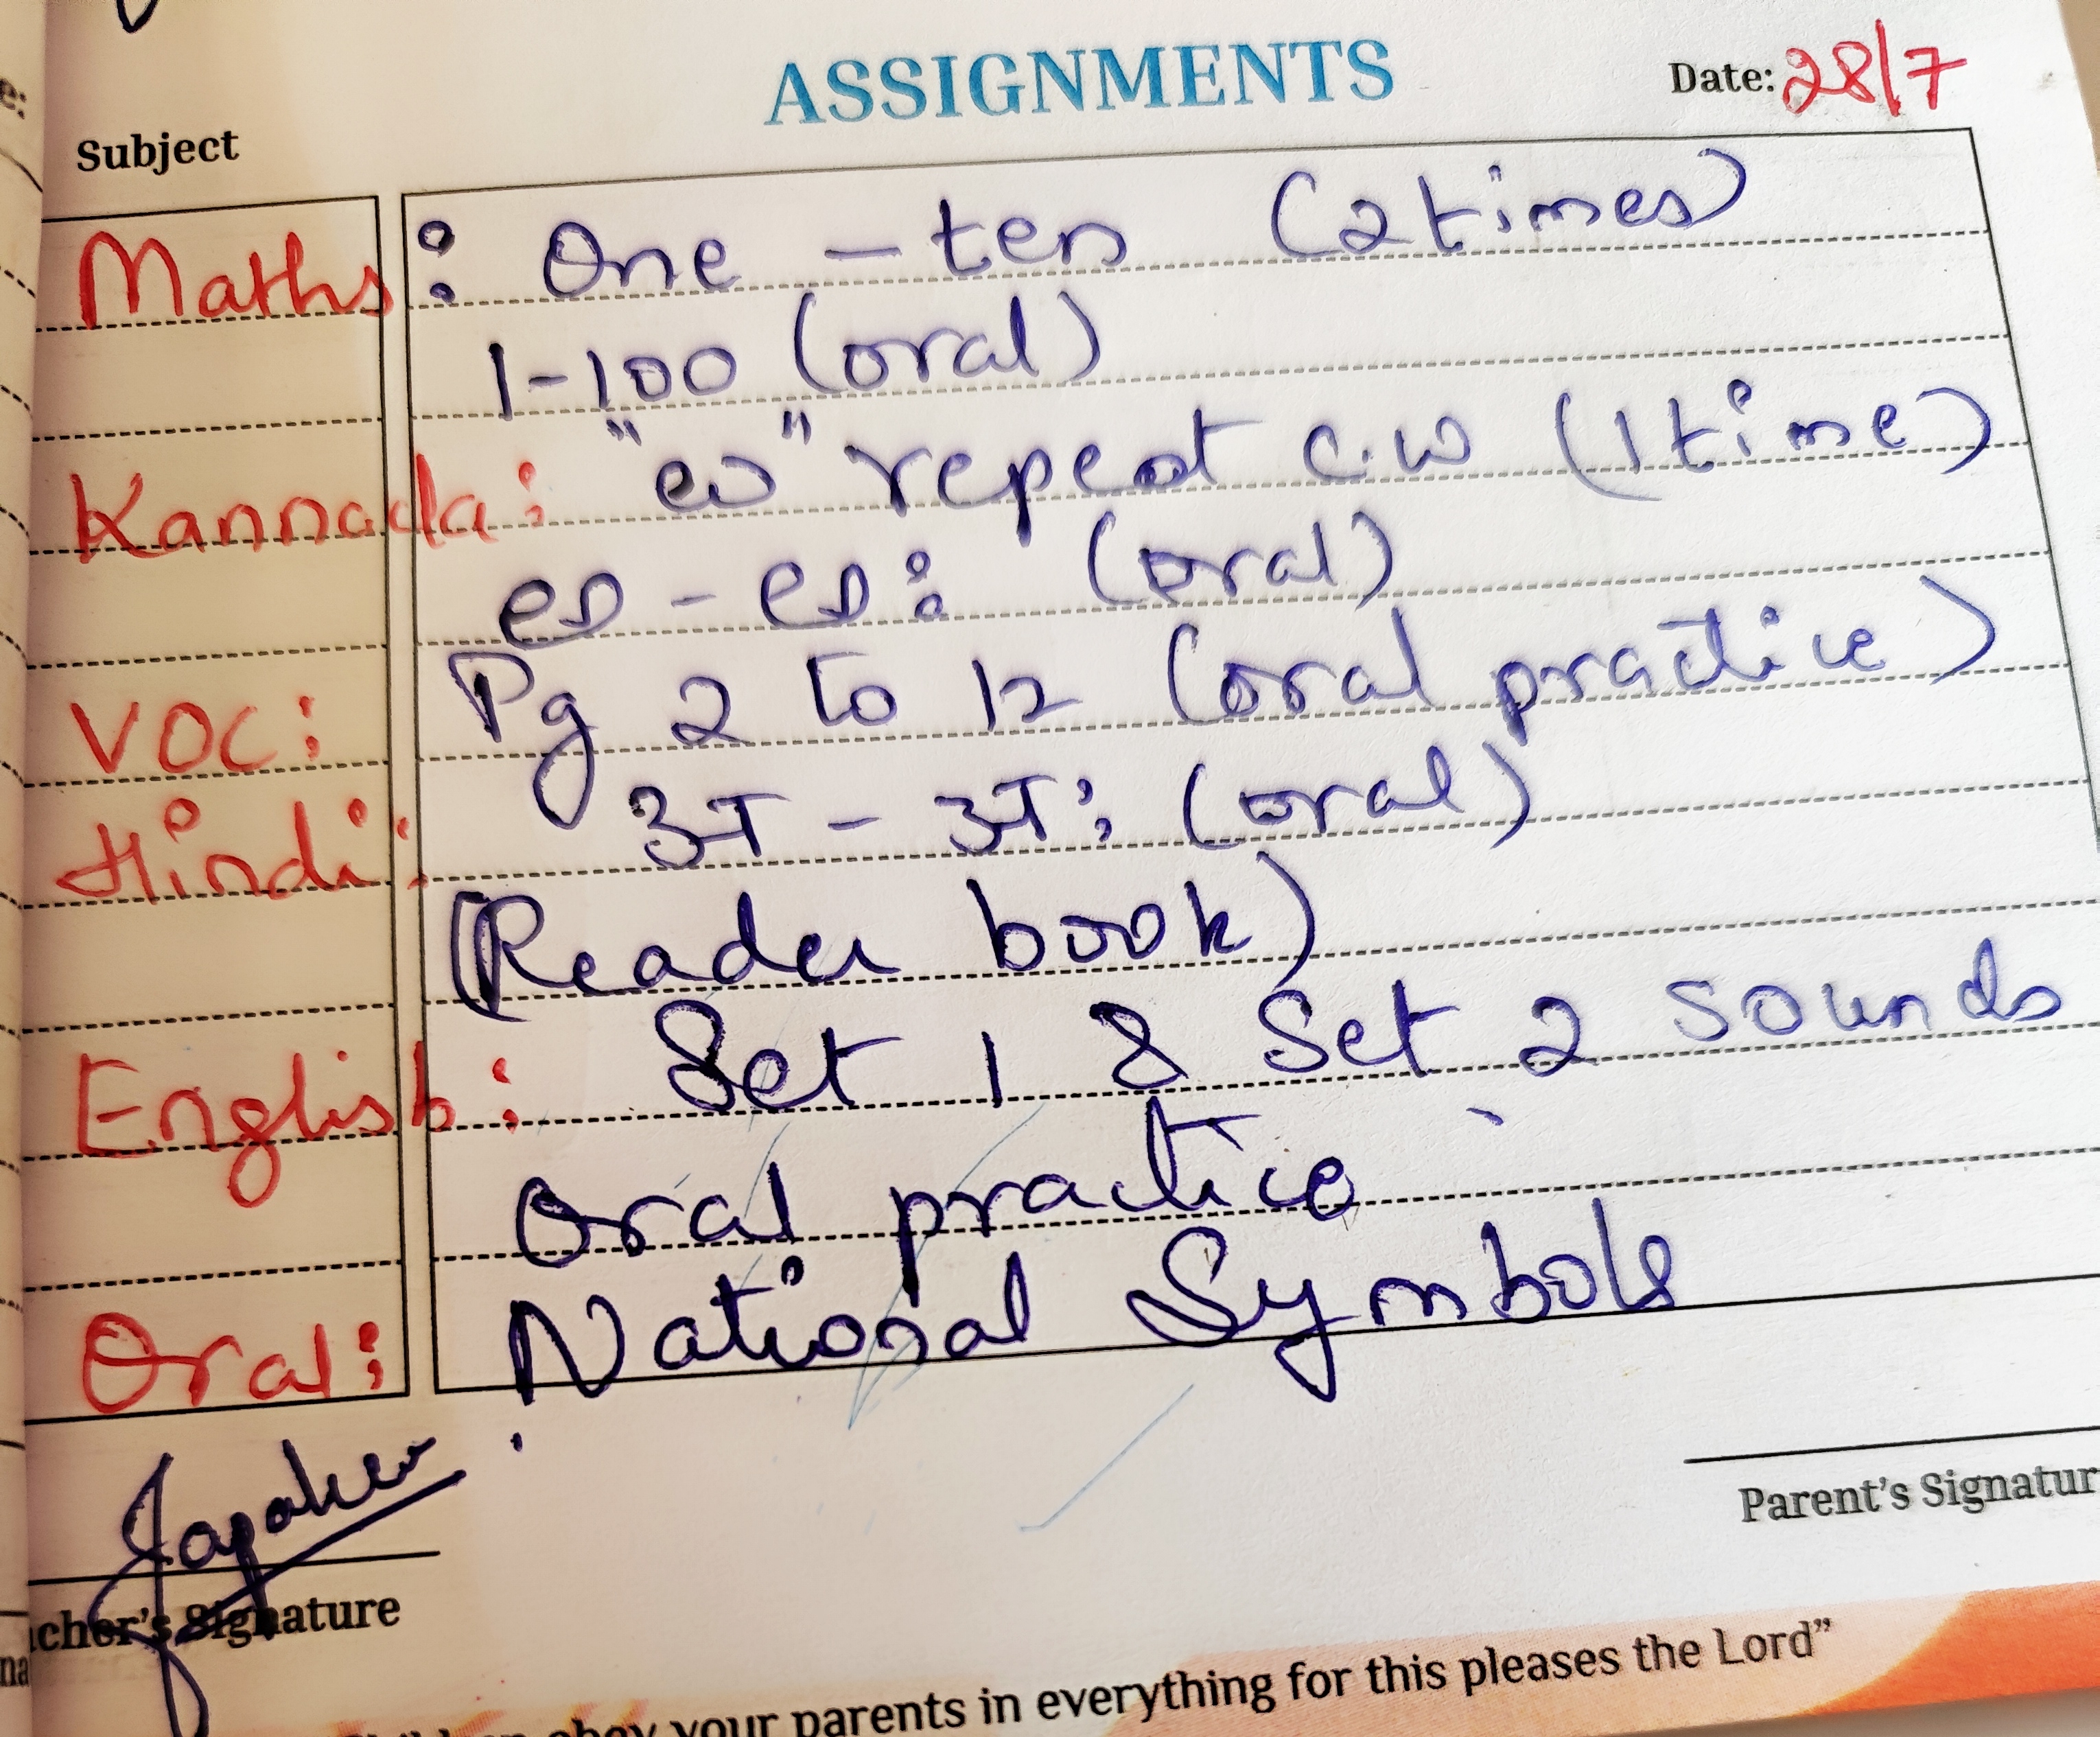 ASSIGNMENTS
Date: 28/7
Subject
Maths : One - ten (2 times)
1-100 (oral)
Kannada: "ಅ" repeat c.w (1 time)
ಅ - ಅಃ (oral)
VOC: Pg 2 to 12 (oral practice)
Hindi: अ - अः (oral)
(Reader book)
English: Set 1 & Set 2 sounds
Oral practice
Oral: National Symbols
Parent's Signatur
cher's Signature
obey your parents in everything for this pleases the Lord"